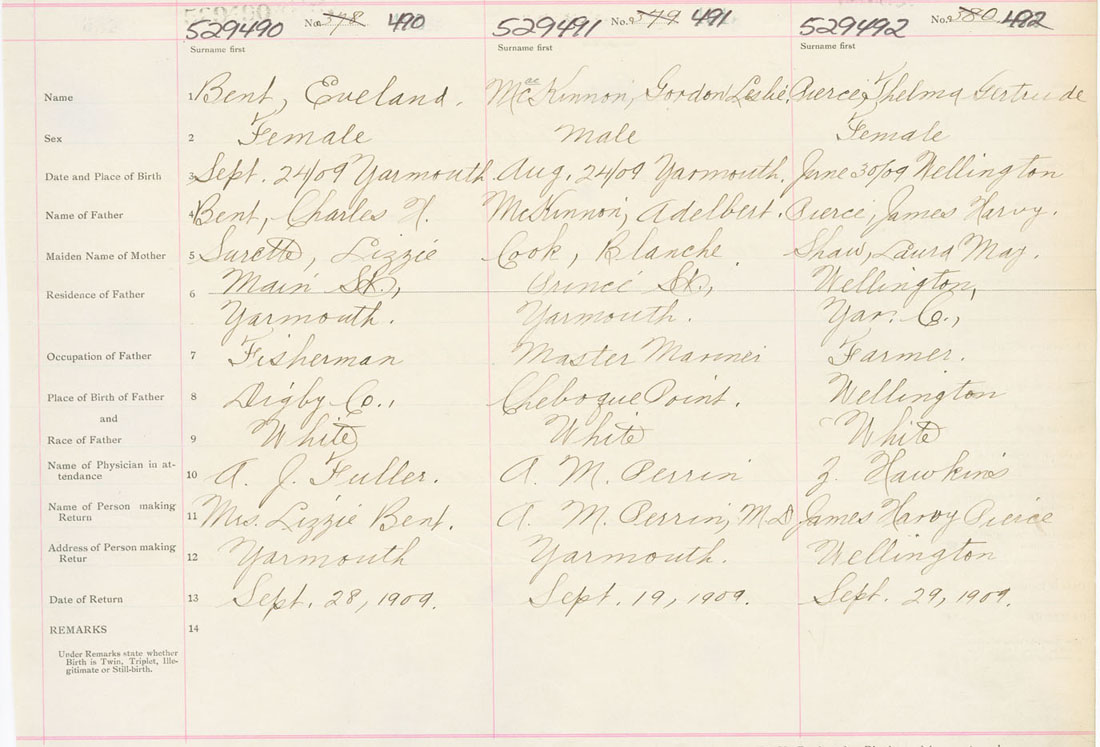 529490 No. 378 490 529491 No. 379 491 529492 No. 380 492
Surname first Surname first Surname first
Name 1 Bent, Eveland. MacKinnon, Gordon Leslie. Pierce, Thelma Gertrude
Sex 2 Female Male Female
Date and Place of Birth 3 Sept. 24/09 Yarmouth Aug. 24/09 Yarmouth. June 30/09 Wellington
Name of Father 4 Bent, Charles H. McKinnon, Adelbert. Pierce, James Harvy.
Maiden Name of Mother 5 Surette, Lizzie Cook, Blanche. Shaw, Laura May.
Residence of Father 6 Main St., Prince St., Wellington,
Yarmouth. Yarmouth. Yar. Co.,
Occupation of Father 7 Fisherman Master Mariner Farmer.
Place of Birth of Father 8 Digby Co., Cheboque Point. Wellington
and
Race of Father 9 White White White
Name of Physician in at-
tendance 10 A. J. Fuller. A. M. Perrin Z. Hawkins
Name of Person making
Return 11 Mrs. Lizzie Bent. A. M. Perrin, M.D James Harvy Pierce
Address of Person making
Retur 12 Yarmouth Yarmouth. Wellington
Date of Return 13 Sept. 28, 1909. Sept. 19, 1909. Sept. 29, 1909.
REMARKS 14
Under Remarks state whether
Birth is Twin, Triplet, Ille-
gitimate or Still-birth.